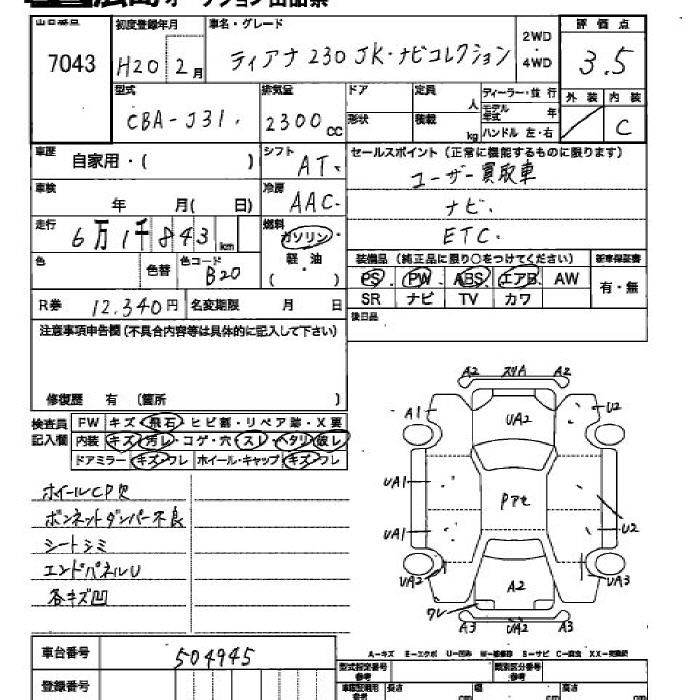 広島オークション出品票
出品番号 初度登録年月 車名・グレード 2WD・4WD 評価点
7043 H20 2月 ティアナ 230 JK・ナビコレクション 3.5
型式 排気量 ドア 定員 人 ディーラー・並行 外装 内装
CBA-J31. 2300cc 形状 積載 kg モデル年式 年 ハンドル 左・右 C
車歴 自家用・( ) シフト AT. セールスポイント (正常に機能するものに限ります)
ユーザー買取車
車検 年 月( 日) 冷房 AAC. ナビ.
走行 6万1千843km 燃料 ガソリン・ ETC.
色 色替 色コード B20 軽・油 ( ) 装備品 (純正品に限り○をつけてください) 新車保証書
PS PW ABS エアB AW 有・無
R券 12.340円 名変期限 月 日 SR ナビ TV カワ
注意事項申告欄 (不具合内容等は具体的に記入して下さい) 後日品
修復歴 有 (箇所 )
検査員記入欄 FW キズ・飛石・ヒビ割・リペア跡・X要
内装 キズ・汚レ・コゲ・穴・スレ・ヘタリ・破レ
ドアミラー キズ・ワレ ホイール・キャップ キズ・ワレ
ホイールCP欠
ボンネットダンパー不良
シートシミ
エンドパネルU
各キズ凹
A2 スリA A2
A1 UA2 U2
UA1 Pアセ
UA1 U2
UA2 A2 UA3
ワレ
A3 UA2 A3
A-キズ E-エクボ U-凹み W-補修跡 S-サビ C-腐食 XX-交換済
車台番号 504945 型式指定番号 参考 類別区分番号 参考
登録番号 車庫証明用 参考 長さ cm 幅 cm cm